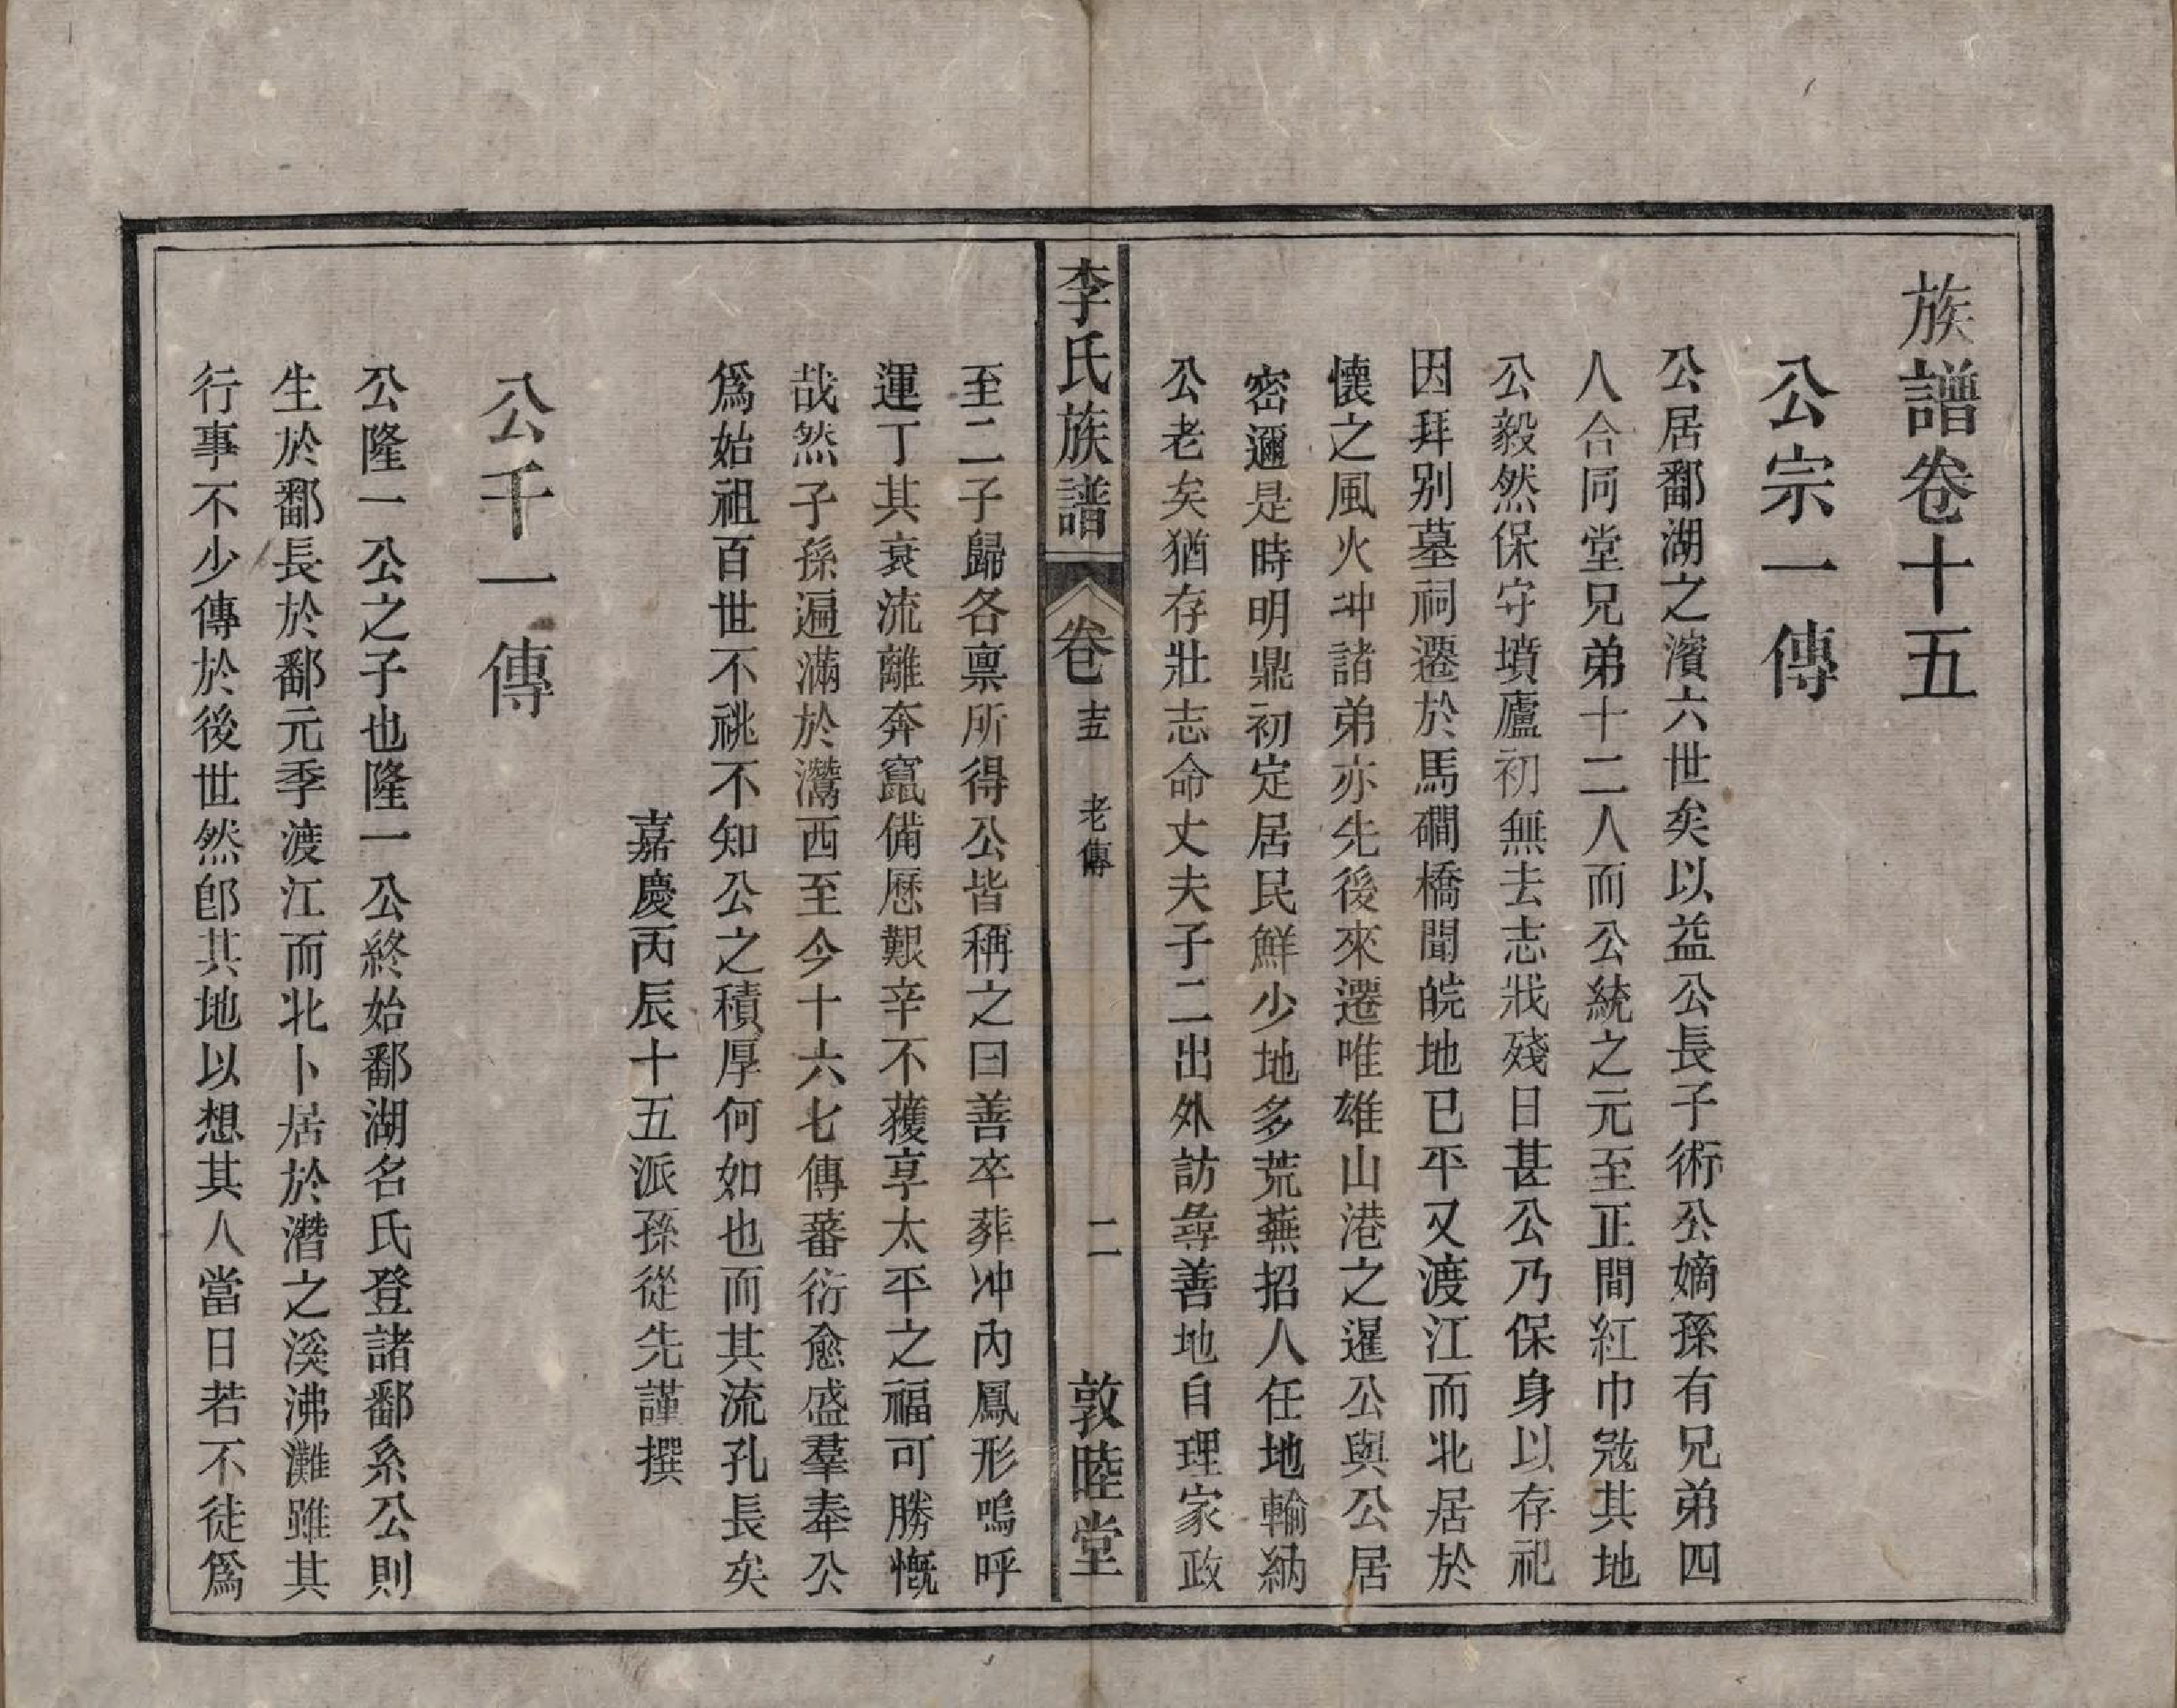 族譜卷十五
公宗一傳
公居鄱湖之濱六世矣以益公長子術公嫡孫有兄弟四
人合同堂兄弟十二人而公統之元至正間紅巾寇其地
公毅然保守墳廬初無去志戕殘日甚公乃保身以存祀
因拜別墓祠遷於馬磵橋聞皖地已平又渡江而北居於
懷之風火冲諸弟亦先後來遷唯雄山港之暹公與公居
密邇是時明鼎初定居民鮮少地多荒蕪招人任地輸納
公老矣猶存壯志命丈夫子二出外訪尋善地自理家政
李氏族譜
卷
十五
老傳
二
敦睦堂
至二子歸各稟所得公皆稱之曰善卒葬冲內鳳形嗚呼
運丁其衰流離奔竄備歷艱辛不獲享太平之福可勝慨
哉然子孫遍滿於灊西至今十六七傳蕃衍愈盛羣奉公
爲始祖百世不祧不知公之積厚何如也而其流孔長矣
嘉慶丙辰十五派孫從先謹撰
公千一傳
公隆一公之子也隆一公終始鄱湖名氏登諸鄱系公則
生於鄱長於鄱元季渡江而北卜居於潛之溪沸灘雖其
行事不少傳於後世然卽其地以想其人當日若不徒爲